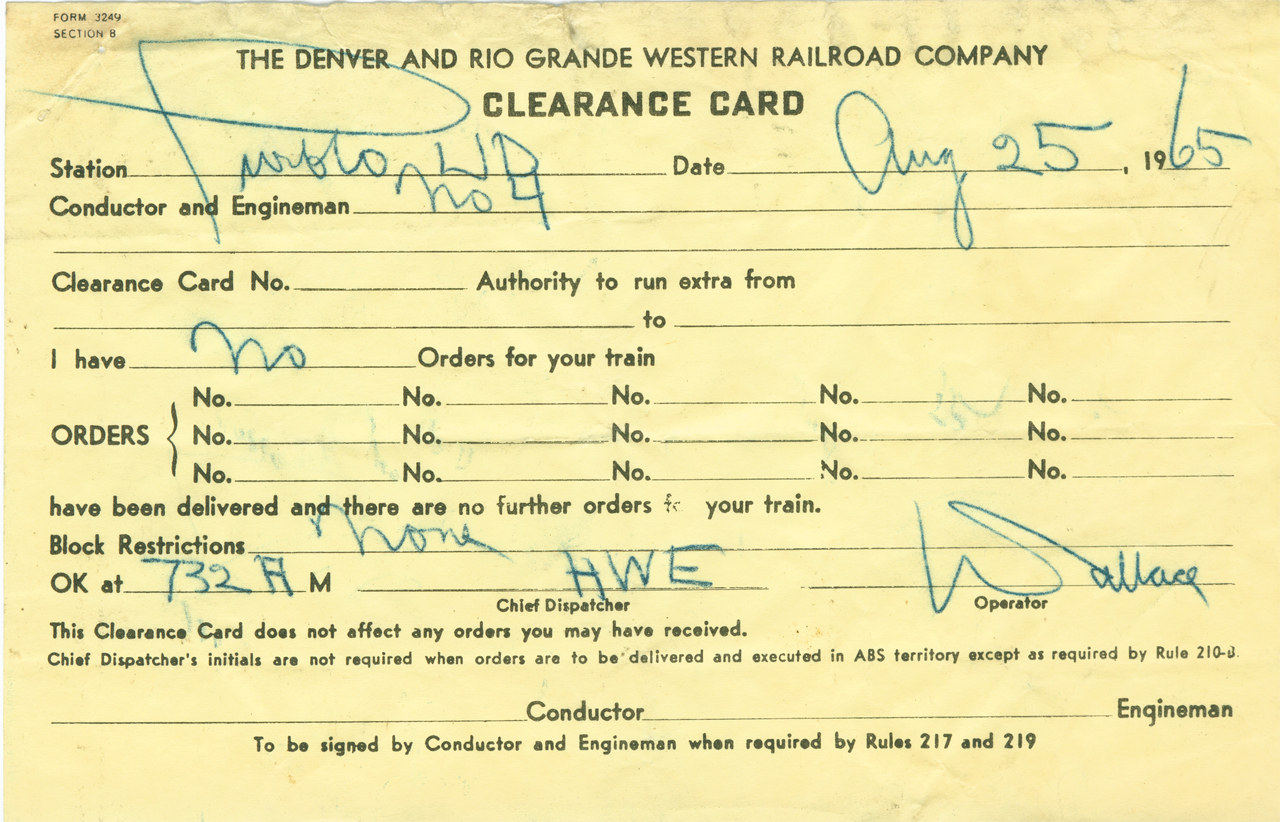 FORM 3249
SECTION B
THE DENVER AND RIO GRANDE WESTERN RAILROAD COMPANY
CLEARANCE CARD
Station Pueblo, UD Date Aug 25, 1965
Conductor and Engineman No 4
Clearance Card No. Authority to run extra from
to
I have No Orders for your train
No. No. No. No. No.
ORDERS { No. No. No. No. No.
No. No. No. No. No.
have been delivered and there are no further orders your train.
Block Restrictions None
OK at 732 A M HWE Wallace
Chief Dispatcher Operator
This Clearance Card does not affect any orders you may have received.
Chief Dispatcher's initials are not required when orders are to be delivered and executed in ABS territory except as required by Rule 210-B.
Conductor Engineman
To be signed by Conductor and Engineman when required by Rules 217 and 219